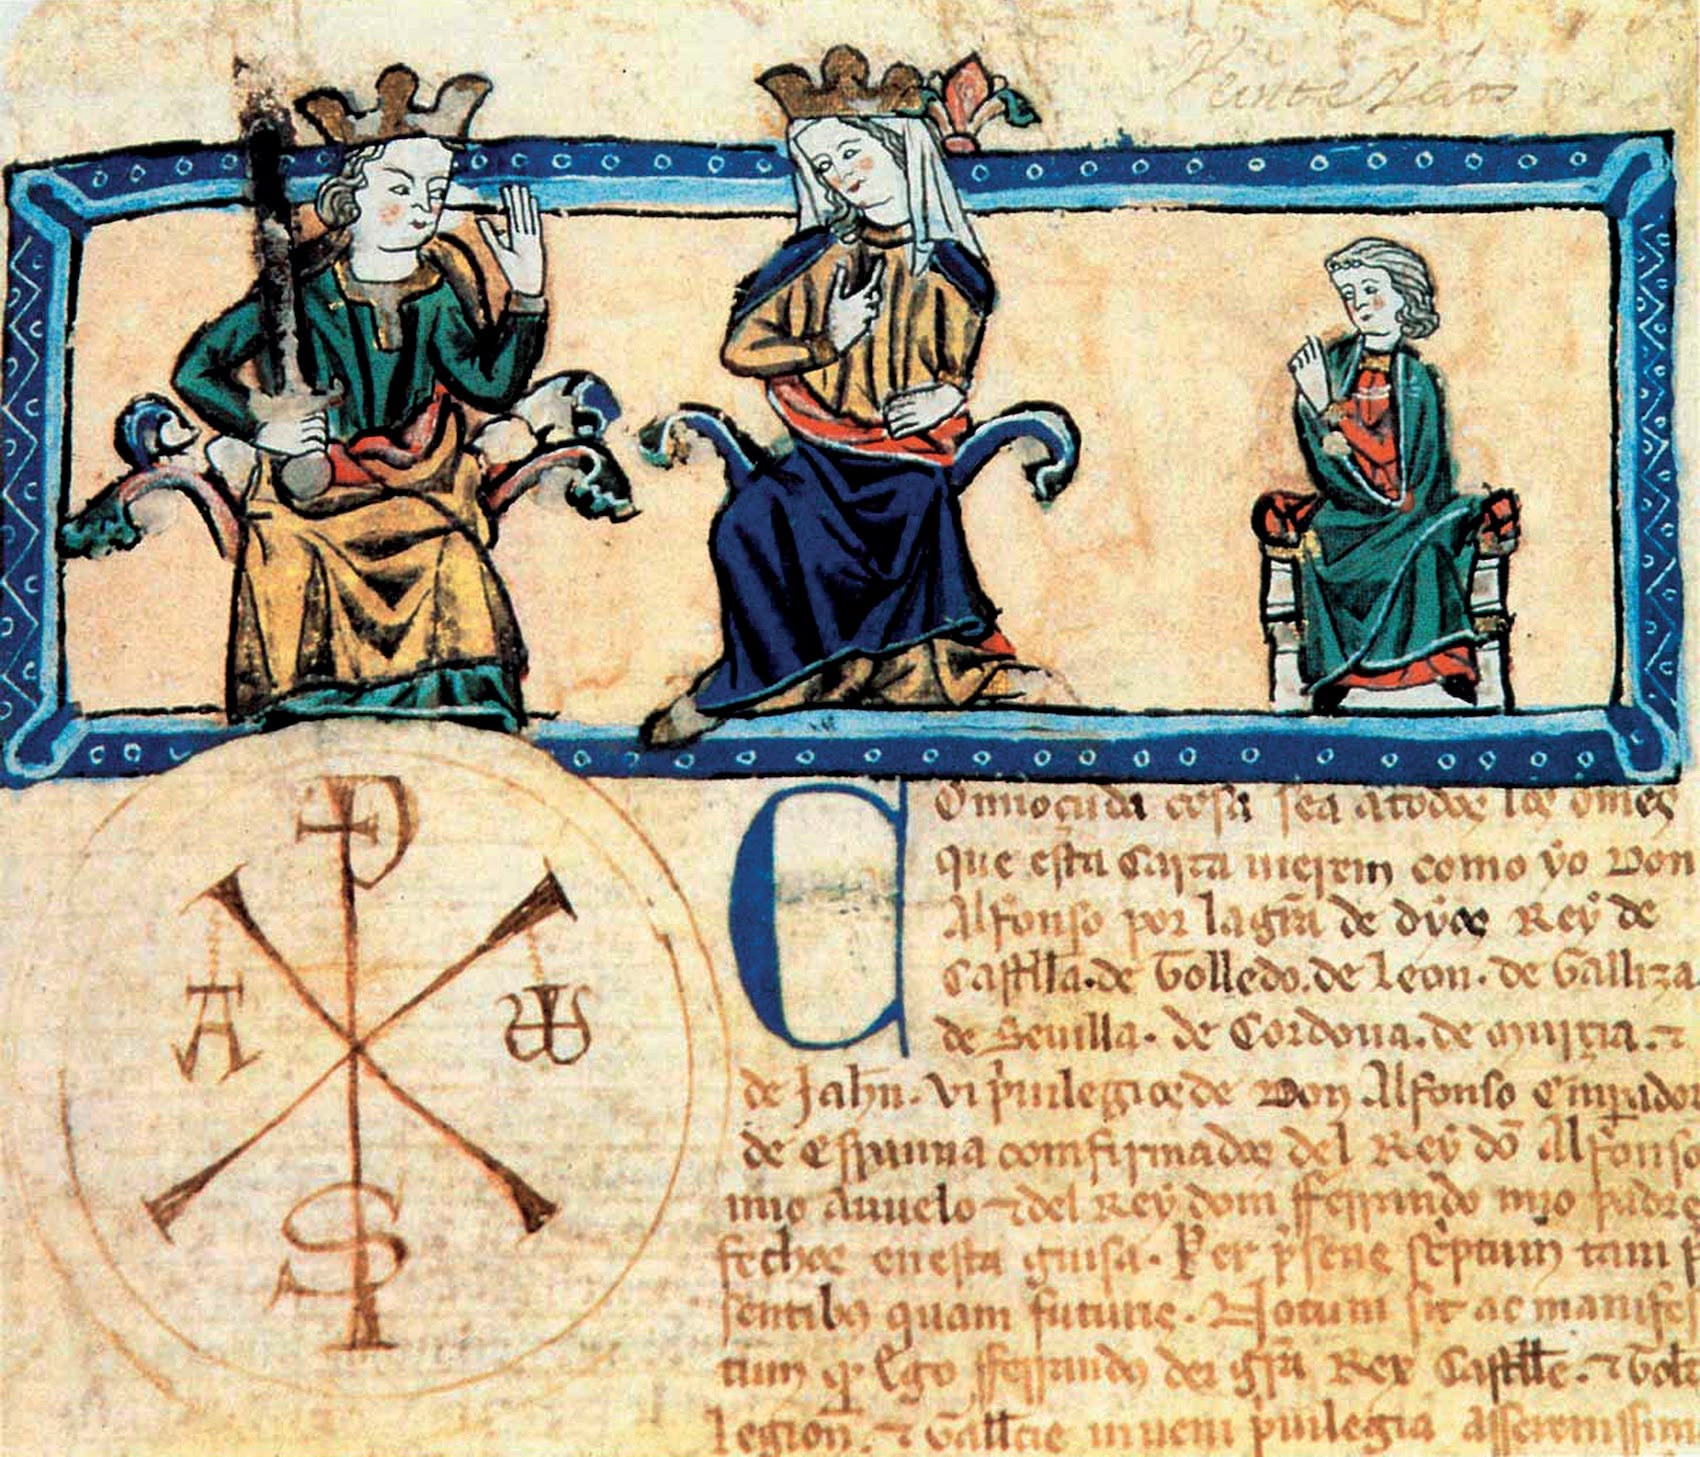 Veinte y dos
P
A ω
S
Connoçuda cosa sea a todos los omes
que esta carta uieren como yo Don
Alfonso por la gr̃a de dyos Rey de
Castiella. de Tolledo. de Leon. de Gallizia.
de Seuilla. de Cordoua. de Murçia. ⁊
de Jahen. vi priuilegios de Don Alfonso Emperador
de Espanna confirmados del Rey dõ Alfonso
mio auuelo ⁊ del Rey don fferrando mio padre
fechos en esta guisa. Per p̃sens sc̃ptum tam p̃
sentibꝰ quam futuris. Notum sit ac manifes
tum qđ Ego fferrandꝰ dei gr̃a Rex Castelle. ⁊ Tolł
Legioñ. ⁊ Gallecie inueni priuilegia a sserenissim